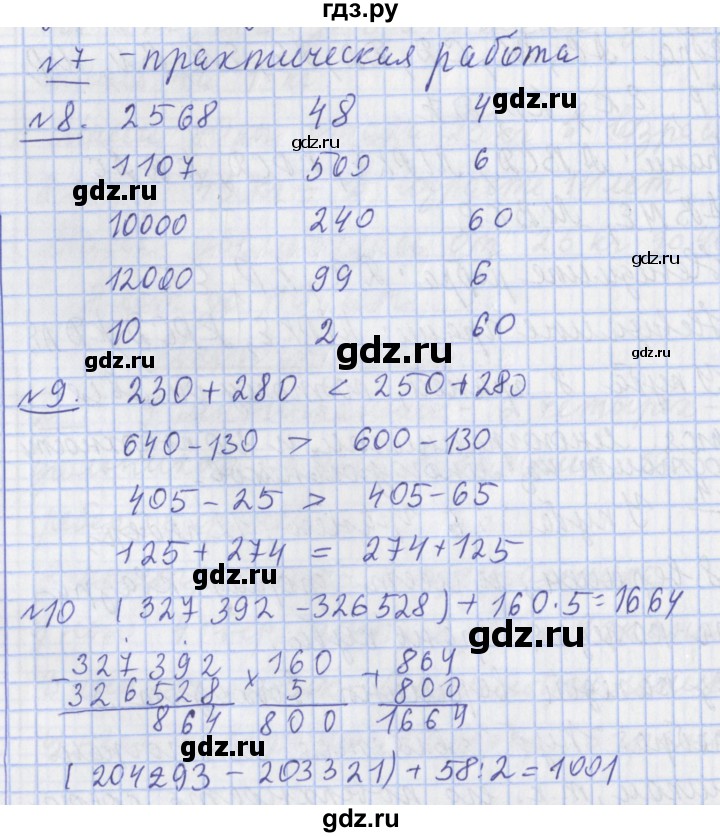 гдз.ру
№7 - практическая работа
№8. 2568 48 4
gdz.ru
gdz.ru
1107 509 6
gdz.ru
10000 240 60
gdz.ru
12000 99 6
10 2 60
gdz.ru
gdz.ru
gdz.ru
№9. 230 + 280 < 250 + 280
640 - 130 > 600 - 130
405 - 25 > 405 - 65
125 + 274 = 274 + 125
gdz.ru
№10 (327 392 - 326528) + 160 · 5 = 1664
gdz.ru
- 327 392 × 160 + 864
326 528 5 800
864 800 1664
gdz.ru
(204293 - 203321) + 58 : 2 = 1001
gdz.ru